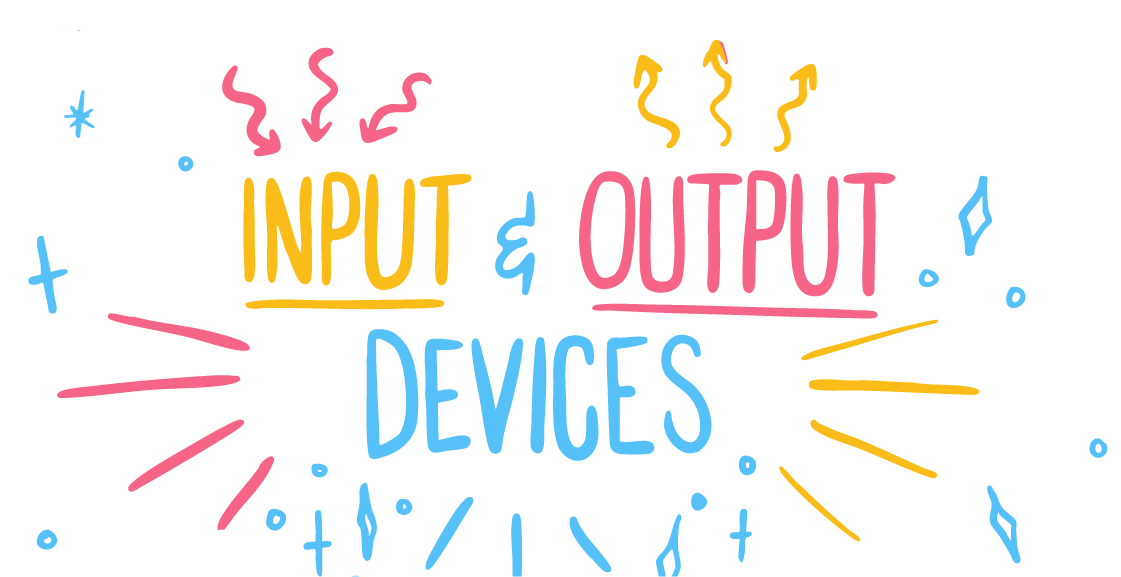 INPUT & OUTPUT
DEVICES